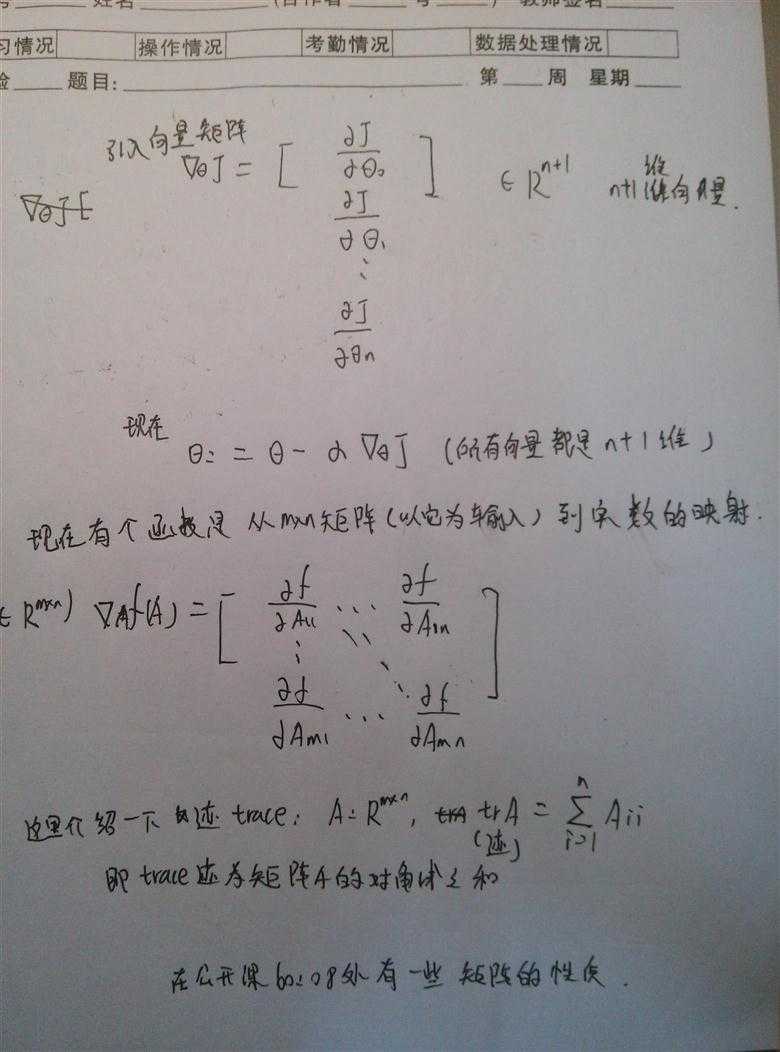 姓名
教师签名
习情况 操作情况 考勤情况 数据处理情况
验 题目: 第 周 星期
引入向量矩阵
∇θJ = [ ∂J/∂θ₀ ∂J/∂θ₁ ⋮ ∂J/∂θn ] ∈ R^{n+1} n+1维向量.
∇θJ [
现在 θ := θ - α ∇θJ (所有向量都是 n+1 维)
现在有个函数是从 m×n 矩阵(以它为输入)到实数的映射.
∈ R^{m×n}) ∇Af(A) = [ ∂f/∂A₁₁ ⋯ ∂f/∂A₁n ⋮ ⋱ ∂f/∂Am₁ ⋯ ∂f/∂Amn ]
这里介绍一下 迹 trace: A: R^{m×n}, trA trA = ∑_{i=1}^{n} Aii
(迹)
即 trace 迹为矩阵A的对角线之和
在公开课 60:08处有一些矩阵的性质.